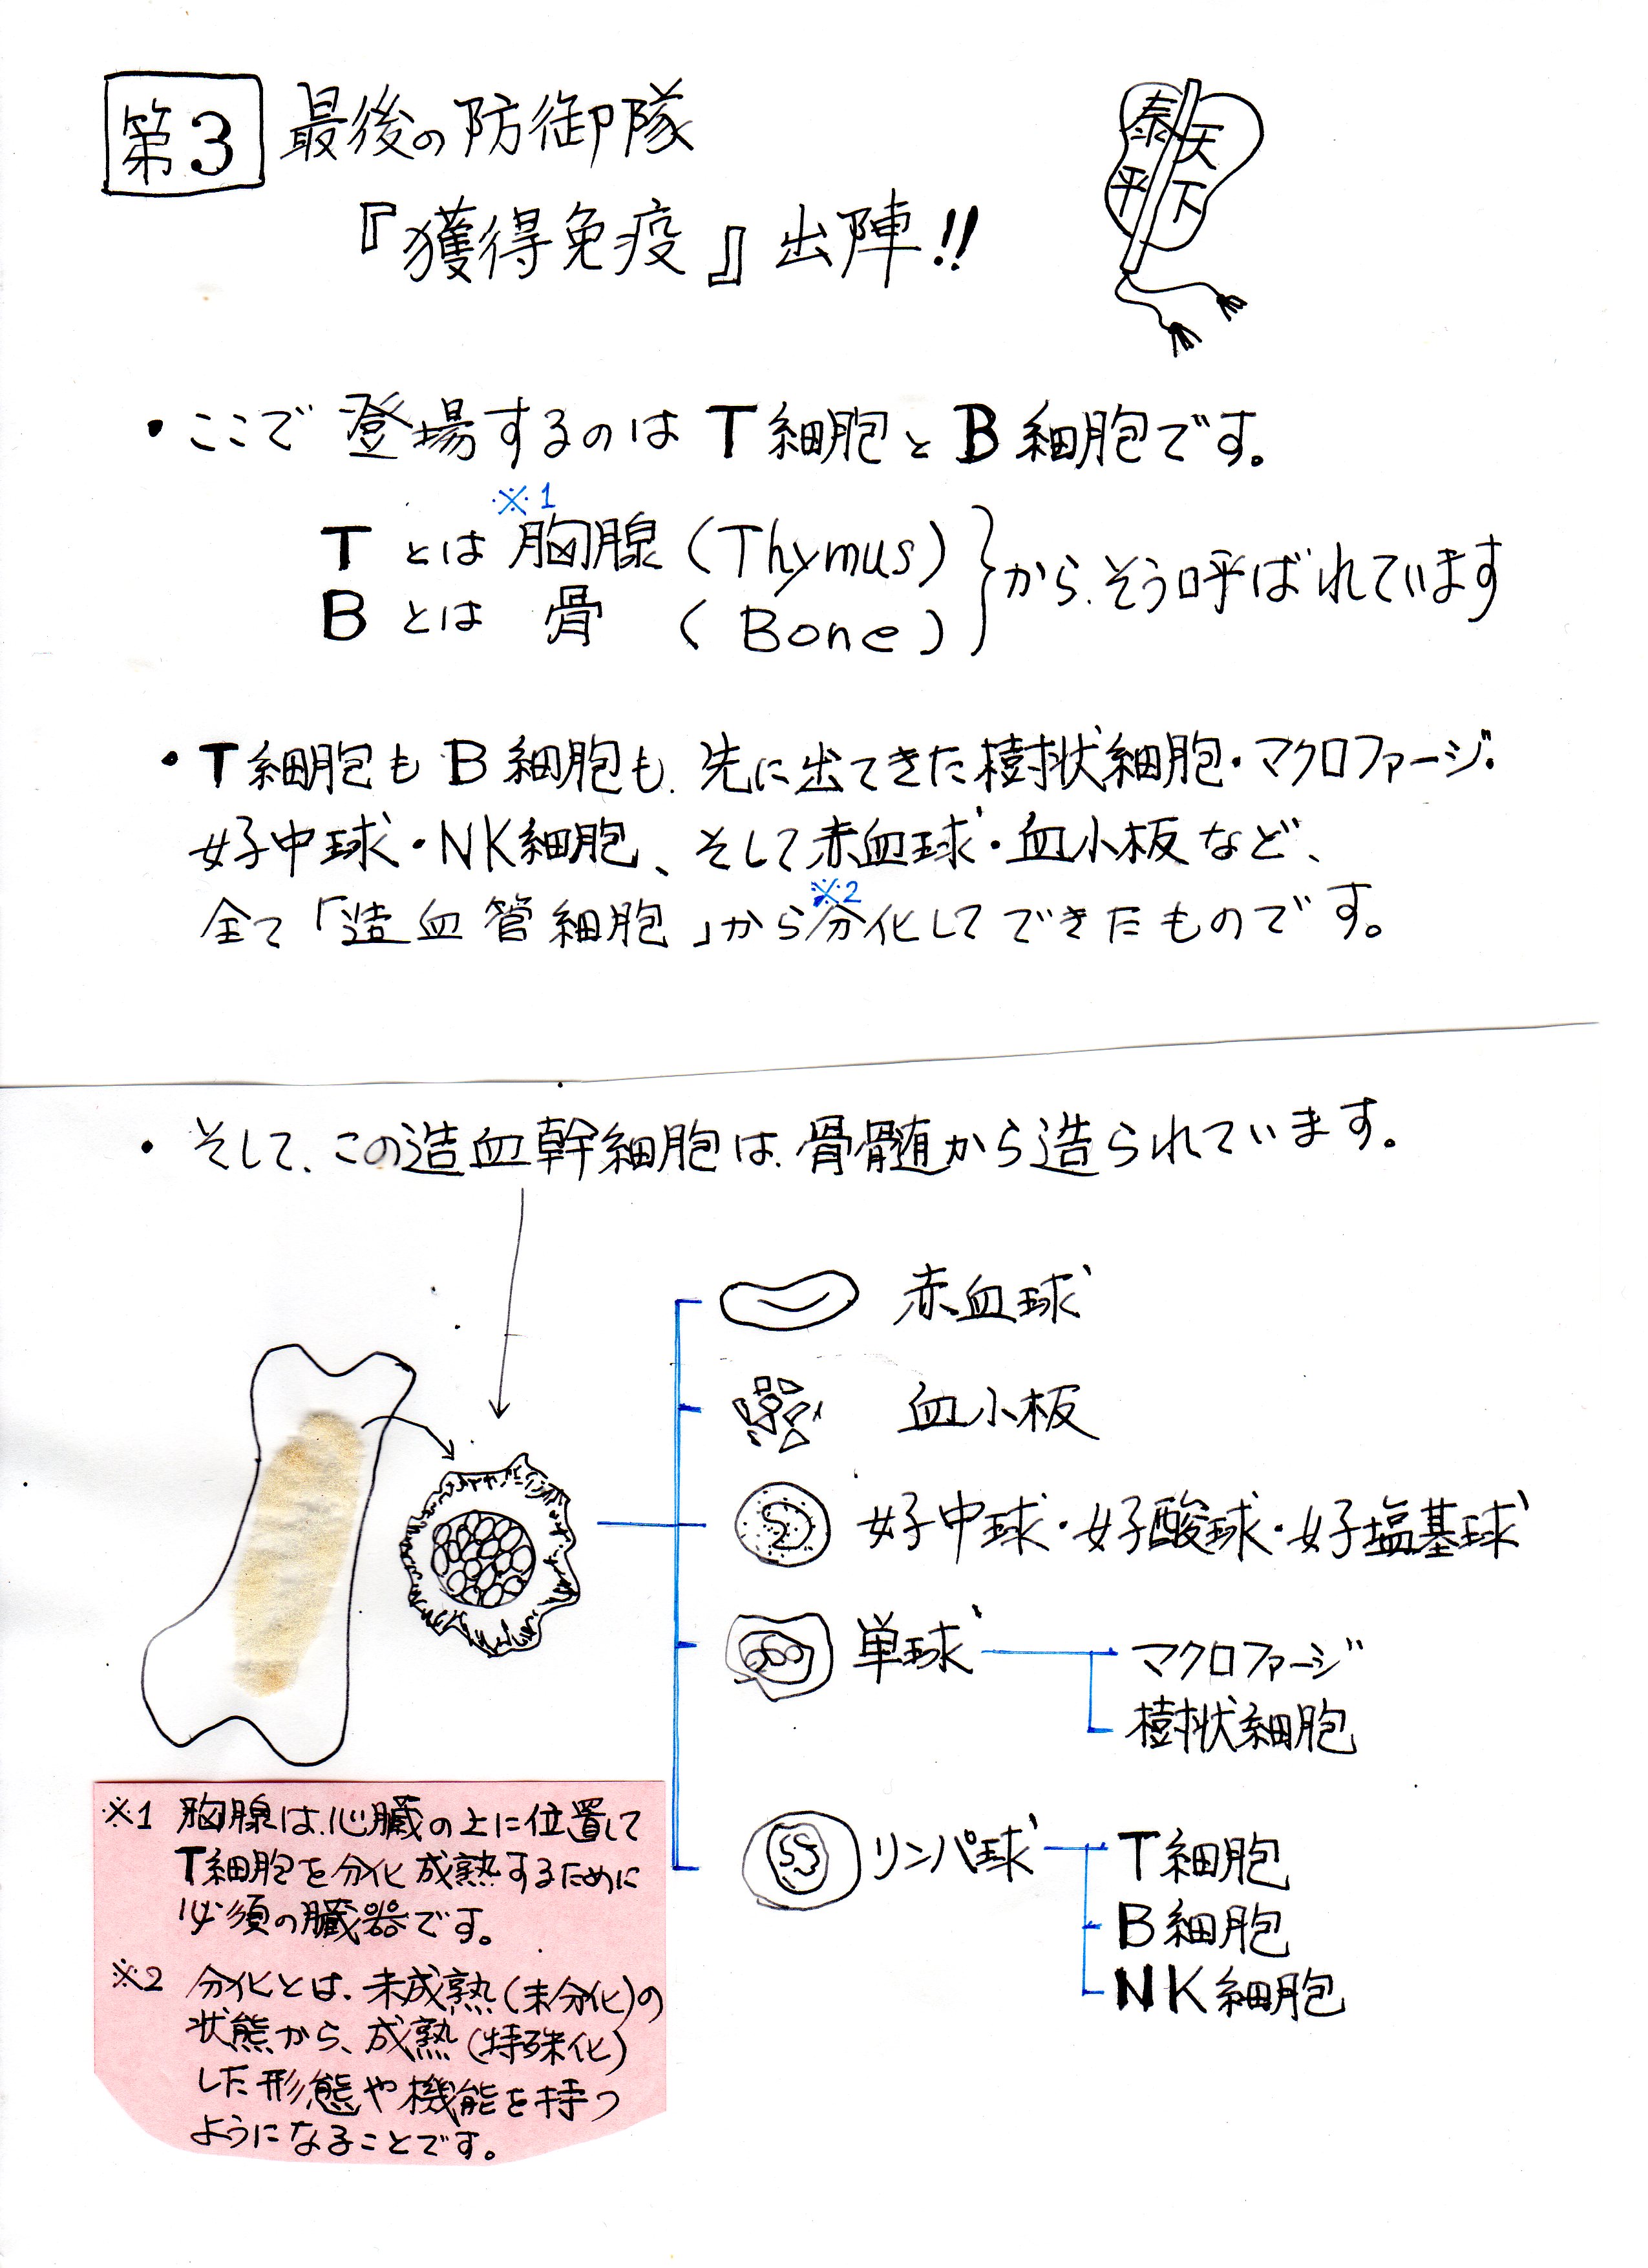 第3 最後の防御隊
『獲得免疫』出陣!!
天下
泰平
・ここで登場するのはT細胞とB細胞です。
※1
Tとは胸腺(Thymus)
Bとは骨(Bone)
から、そう呼ばれています
・T細胞もB細胞も、先に出てきた樹状細胞・マクロファージ・
好中球・NK細胞、そして赤血球・血小板など、
※2
全て「造血管細胞」から分化してできたものです。
・そして、この造血幹細胞は、骨髄から造られています。
赤血球
血小板
好中球・好酸球・好塩基球
単球
マクロファージ
樹状細胞
リンパ球
T細胞
B細胞
NK細胞
※1 胸腺は、心臓の上に位置して
T細胞を分化成熟するために
必須の臓器です。
※2 分化とは、未成熟(未分化)の
状態から、成熟(特殊化)
した形態や機能を持つ
ようになることです。